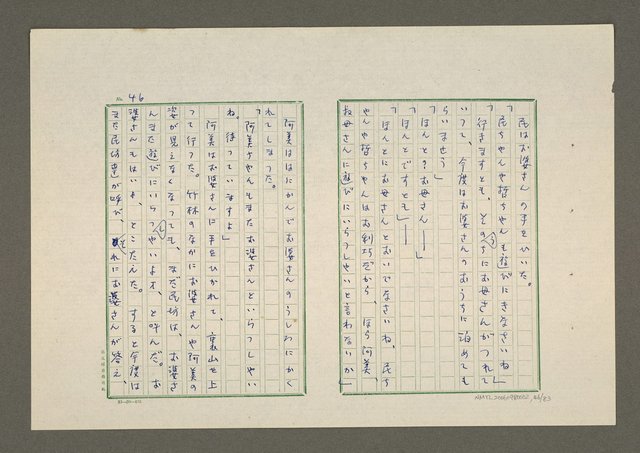 民はお婆さんの手をひいた。
「民ちやんや哲ちやんも遊びにきなさいね」
「行きますとも、そのうちにお母さんがつれて
いつて、今度はお婆さんのおうちに泊めても
らいませう」
「ほんと？お母さん――」
「ほんとですとも」――
「ほんとにお母さんとおいでなさいね、民ち
やんや哲ちやんはお利巧だから、ほら阿美、
叔母さんに遊びにいらつしやいと言わないか」
No. 46
阿美ははにかんでお婆さんのうしろにかく
れてしまつた。
「阿美ちやんもまたお婆さんといらつしやい
ね、待つていますよ」
阿美はお婆さんに手をひかれて、裏山を上
つて行つた。竹林のなかにお婆さんや阿美の
姿が見えなくなつても、まだ民坊は、お婆さ
んまた遊びにいらつしやいよオ、と呼んだ。お
婆さんもはいよ、とこたえた。すると今度は
また民坊達が呼び、それにお婆さんが答え、
NMTL20060980002_46/83